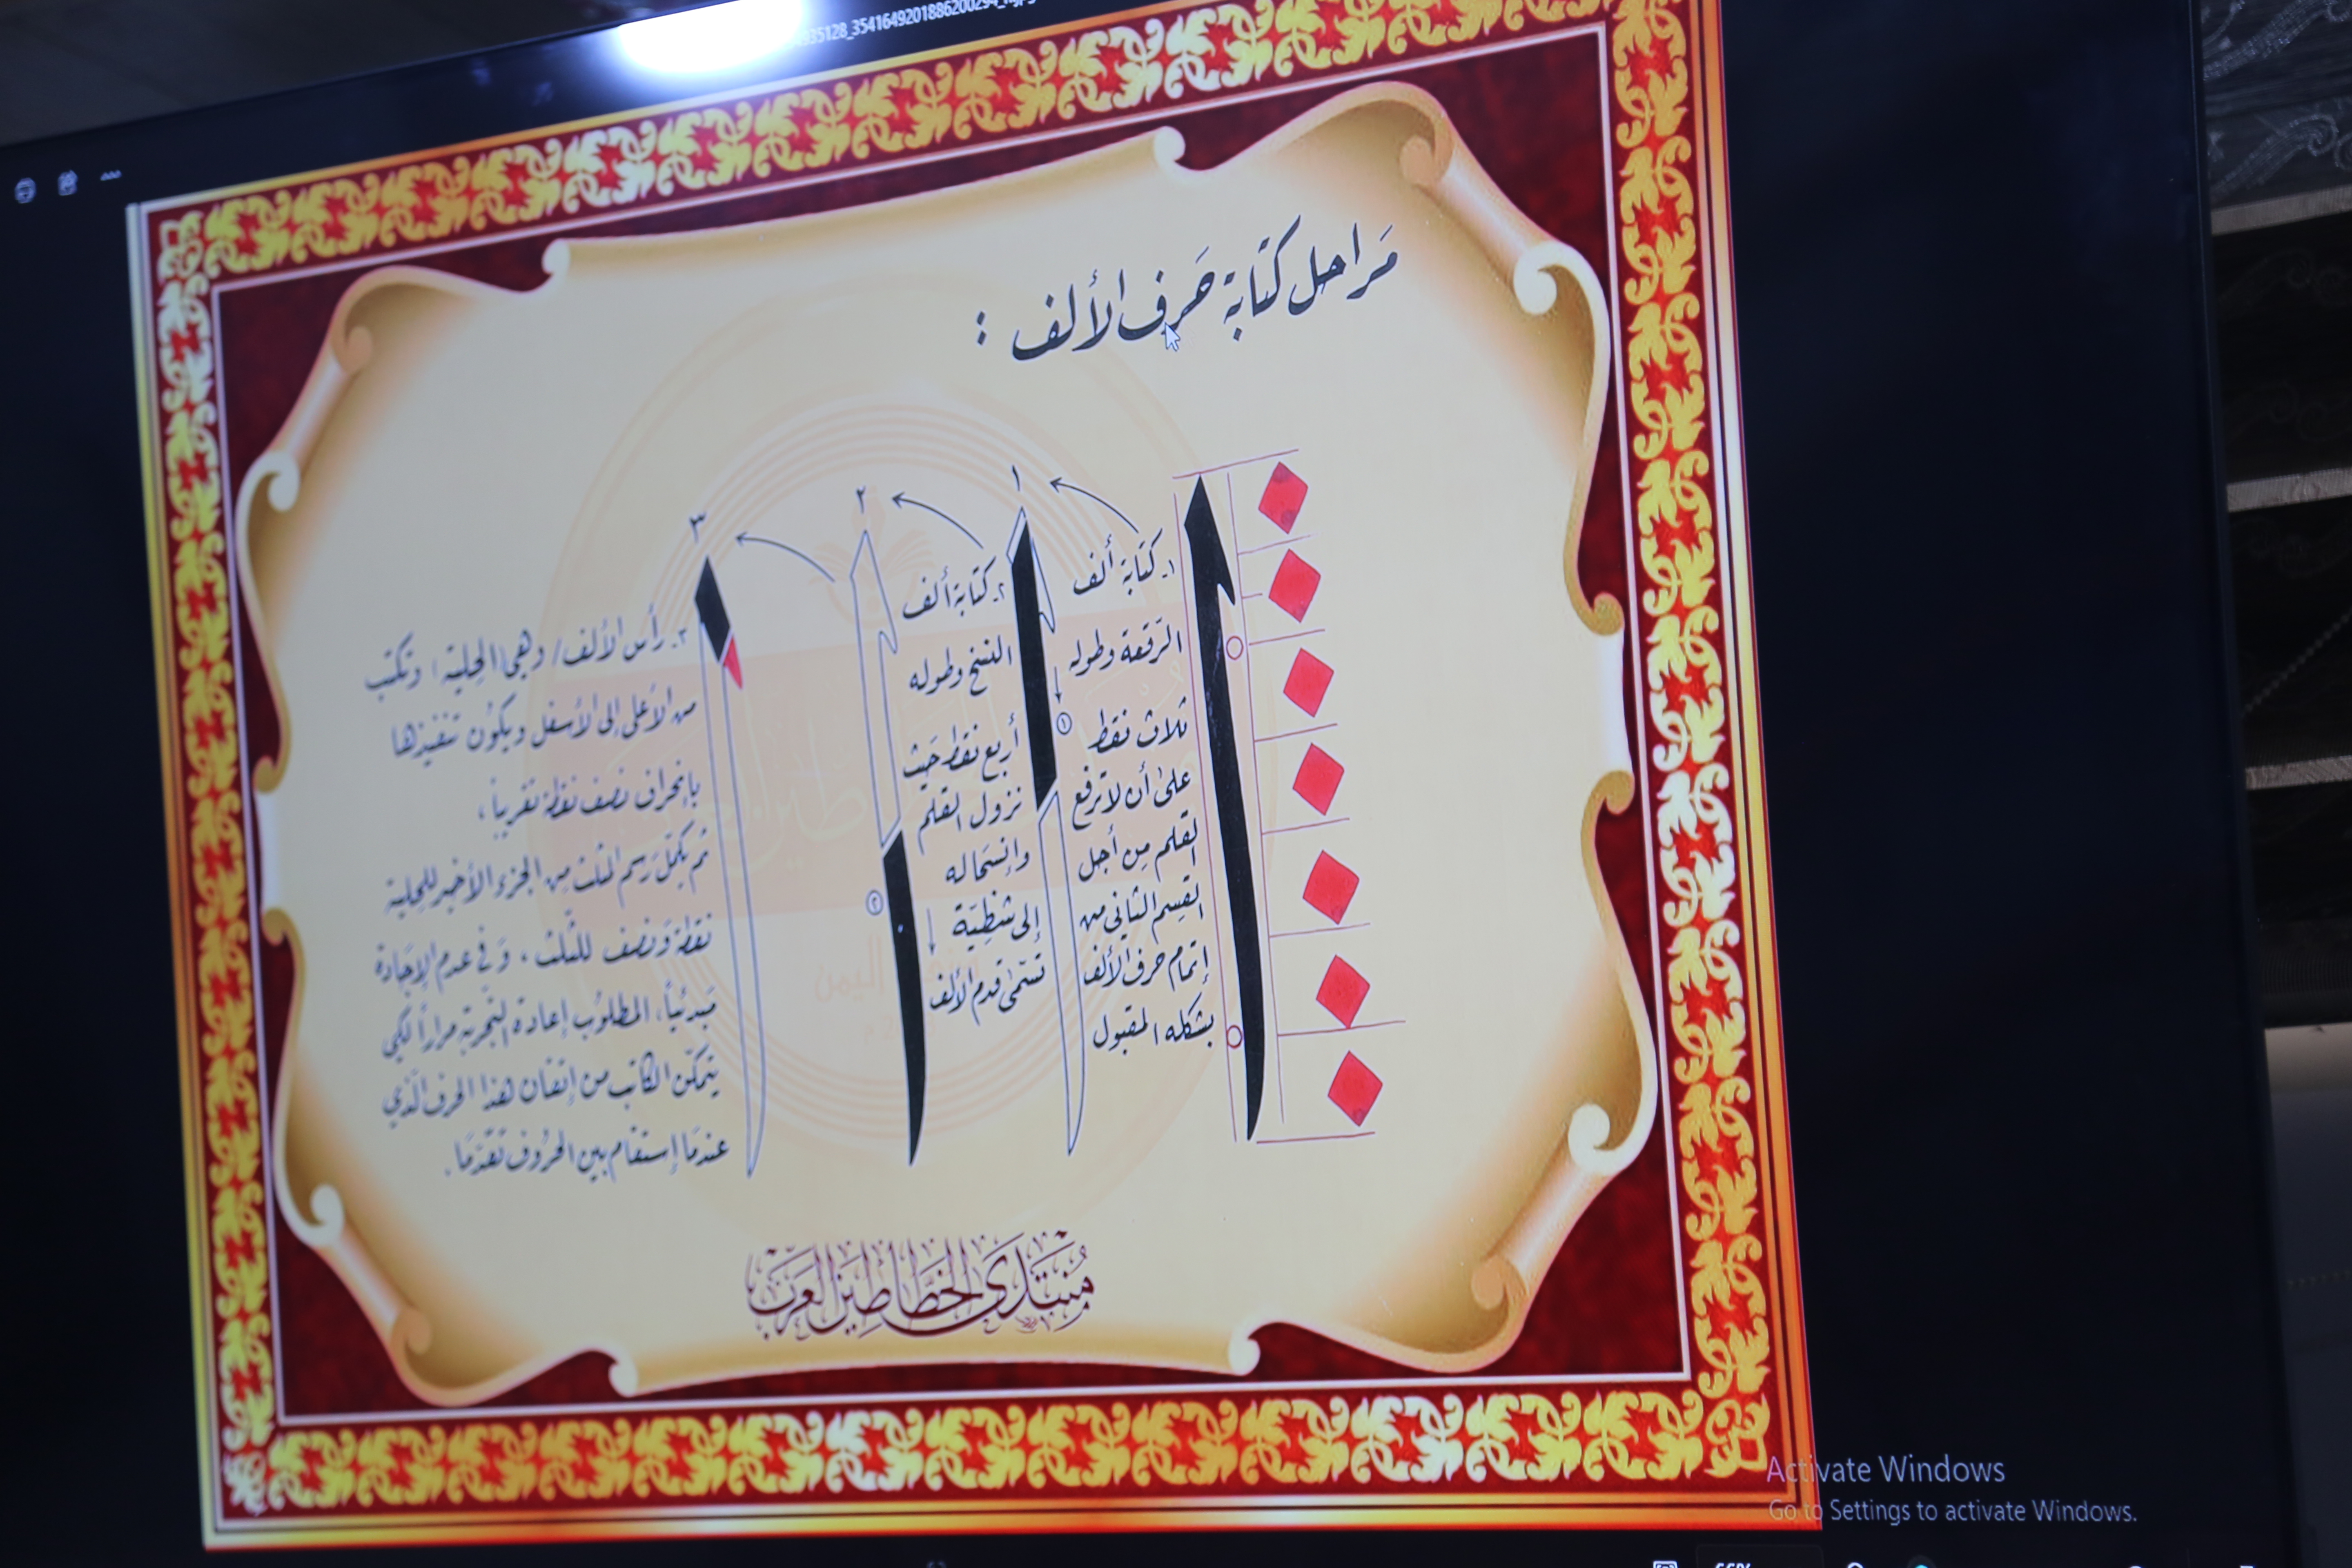 مَراحل كتَابة حَرف الألف :
١
٢
٣
١- كتَابة ألف
الرّقعة وطوله
ثلاث نقط
علىٰ أن لا ترفع
القلم مِن أجل
القِسم الثاني من
إتمام حرف الألف
بشكله المقبول
٢- كتابة ألف
النسخ وطوله
أربع نقط حَيث
نزول القلم
وانسحَاله
إلى شظِيّة
تسمّىٰ قدم الألف
١
٢
٣- رأس الألف / وهي (الحِلية) وتكتب
من الأعلى إلى الأسفل ويكوُن تنفيذها
بإنحراف نصف نقطة تقريباً ،
ثم يكمّل رَسم المثلث مِن الجزء الأخير للحِلية
نقطة وَنصف للثّلث ، وَفي عدم الإجَادة
مَبدئياً ، المطلوُب إعادة التّجربة مراراً لكي
يتمكّن الكاتب من إتقان هذا الحرف الّذي
عندمَا إستقام بين الحرُوف تقدّمَا .
مُنتَدَى الخَطَّاطِين العَرَب
Activate Windows
Go to Settings to activate Windows.